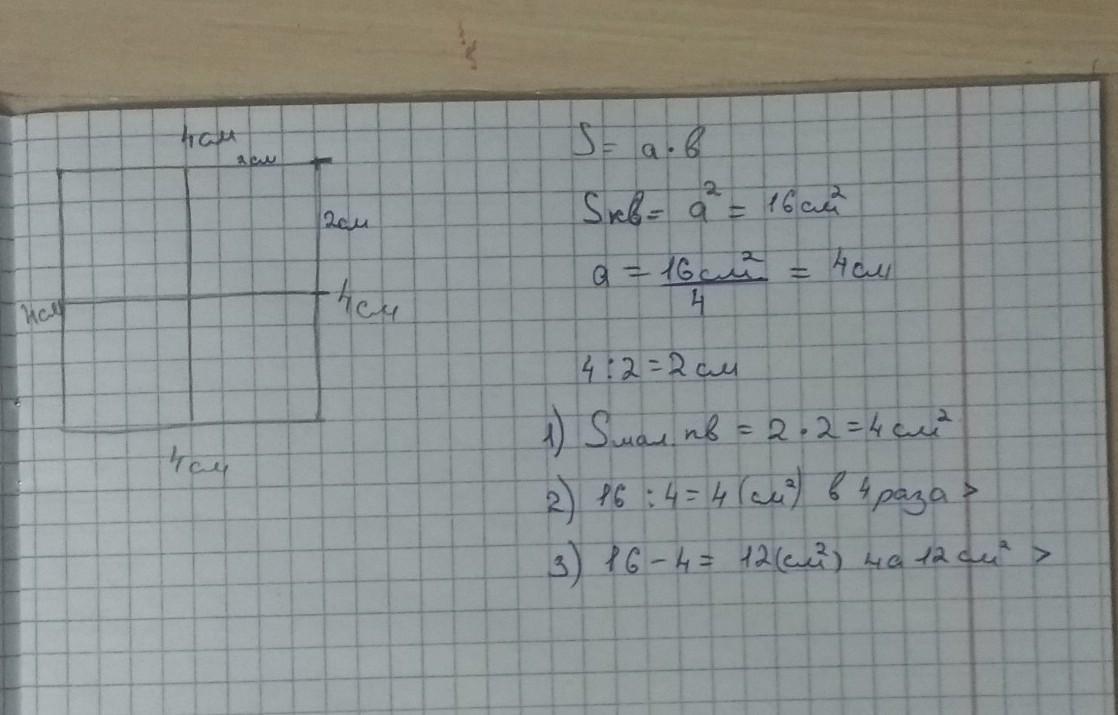 4см
2см
2см
4см
4см
4см
S = a · b
Sкв = a² = 16 см²
a = 16 см² / 4 = 4 см
4 : 2 = 2 см
1) Sмал. кв = 2 · 2 = 4 см²
2) 16 : 4 = 4 (см²) в 4 раза >
3) 16 - 4 = 12 (см²) на 12 см² >